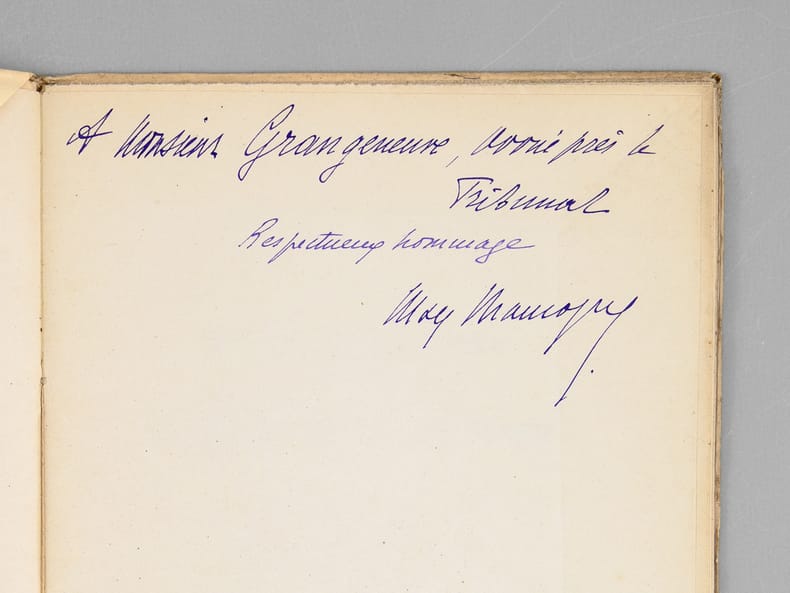 A Monsieur Grangeneuve, avoué près le
Tribunal
Respectueux hommage